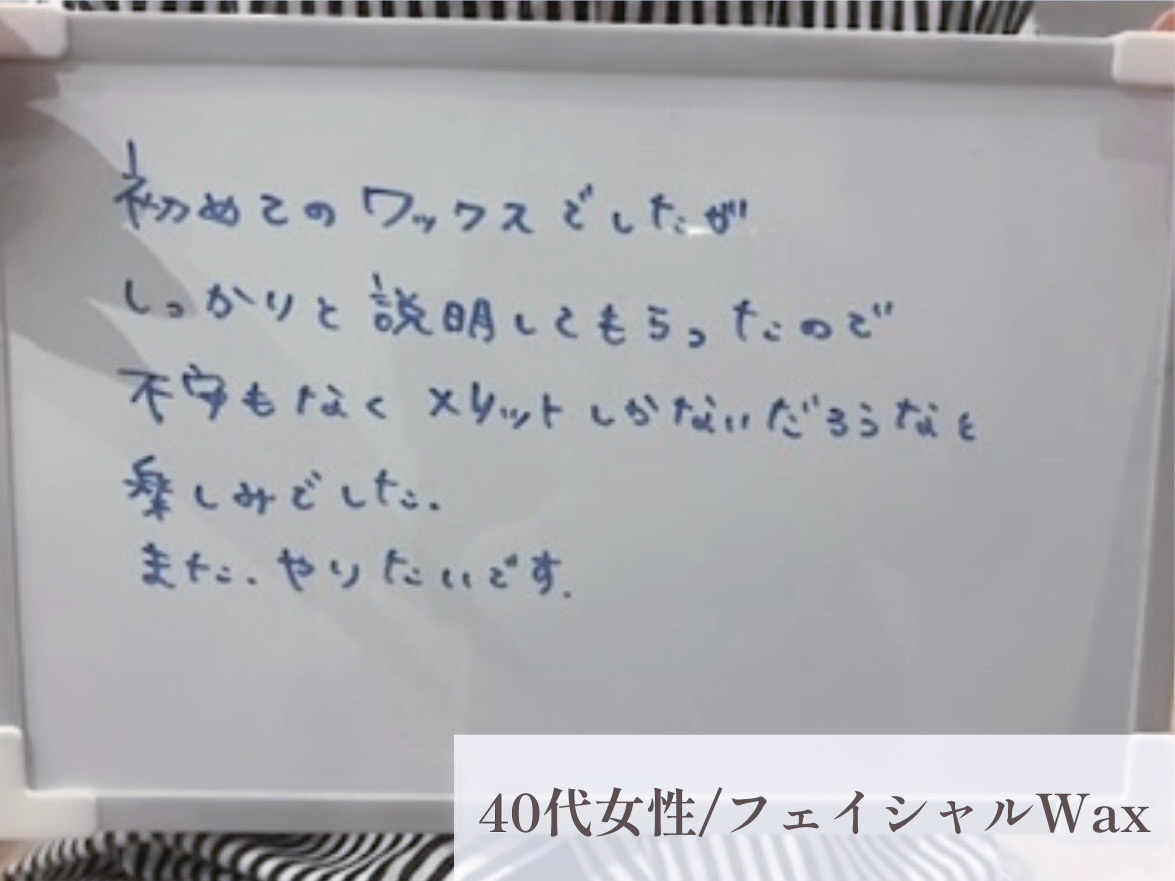 初めてのワックスでしたが
しっかりと説明してもらったので
不安もなくメリットしかないだろうなと
楽しみでした.
また.やりたいです.
40代女性/フェイシャルWax